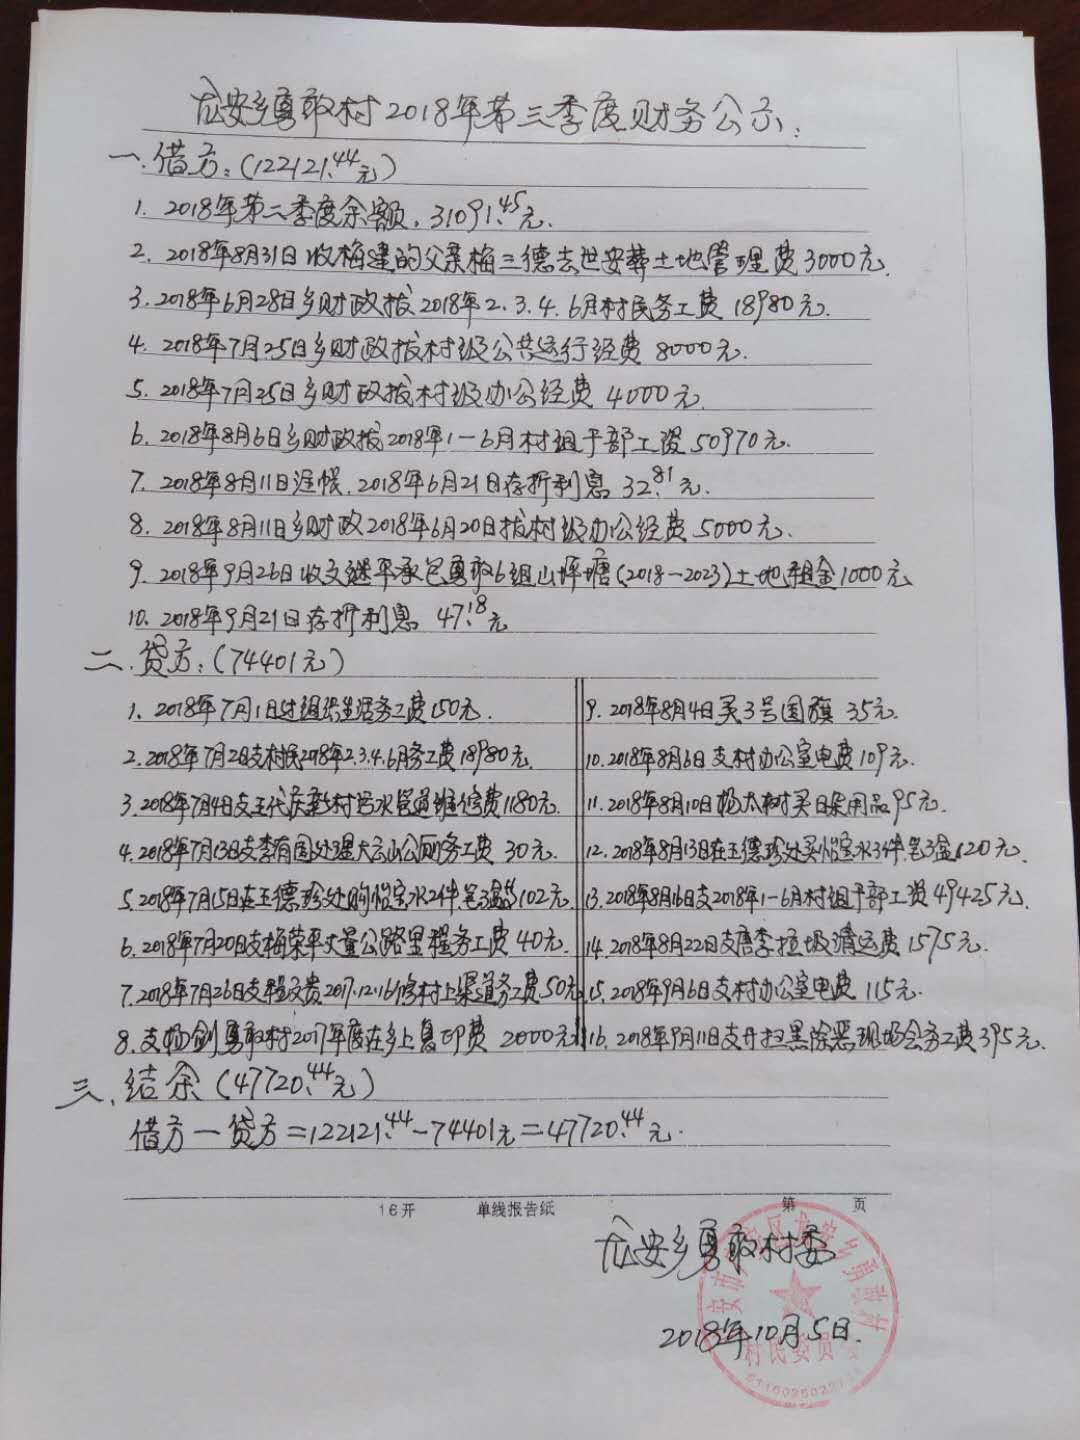 龙安乡勇敢村2018年第三季度财务公示:
一.借方:(122121.44元)
1. 2018年第二季度余额. 31091.45元.
2. 2018年8月31日收梅建的父亲梅三德去世安葬土地管理费3000元.
3. 2018年6月28日乡财政拔2018年2.3.4.6月村民务工费18980元.
4. 2018年7月25日乡财政拔村级公共运行经费8000元.
5. 2018年7月25日乡财政拔村级办公经费4000元.
6. 2018年8月6日乡财政拔2018年1-6月村组干部工资50970元.
7. 2018年8月11日进帐.2018年6月21日存折利息32.81元.
8. 2018年8月11日乡财政2018年6月20日拔村级办公经费5000元.
9. 2018年9月26日收文继平承包勇敢6组山坪塘(2018-2023)土地租金1000元
10. 2018年9月21日存折利息 47.18元
二.贷方:(74401元)
1. 2018年7月1日过组织生活务工费150元.
2. 2018年7月2日支村民2018年2.3.4.6月务工费18980元.
3. 2018年7月4日支王代庆村污水管道维修费1180元.
4. 2018年7月13日支李有国处理大云山公厕务工费30元.
5. 2018年7月15日在王德珍处购怡宝水2件笔3盒102元.
6. 2018年7月20日支梅荣平丈量公路里程务工费40元.
7. 2018年7月26日支程文贵2017.12.16修村上渠道务工费.50元
8. 支杨剑勇敢村2017年度在乡上复印费2000元
9. 2018年8月4日买3号国旗35元.
10. 2018年8月6日支村办公室电费109元.
11. 2018年8月10日杨太树买日杂用品95元.
12. 2018年8月13日在王德珍处买怡宝水3件.笔3盒120元.
13. 2018年8月16日支2018年1-6月村组干部工资49425元.
14. 2018年8月22日支唐李垃圾清运费1575元.
15. 2018年9月6日支村办公室电费115元.
16. 2018年9月11日支开扫黑除恶现场会务工费395元.
三.结余(47720.44元)
借方-贷方=122121.44-74401元=47720.44元.
16开 单线报告纸 第 页
龙安乡勇敢村委
2018年10月5日.
村民委员会